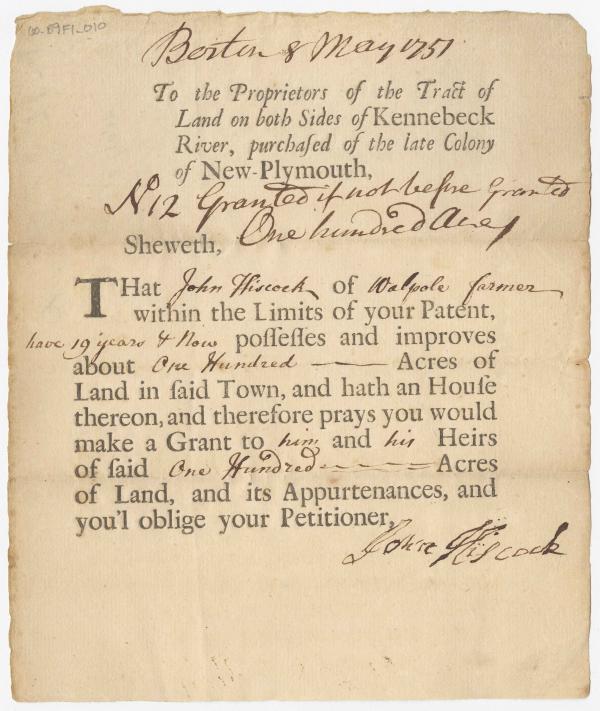 60-09F1_010
Boston 8 May 1751
To the Proprietors of the Tract of
Land on both Sides of Kennebeck
River, purchaſed of the late Colony
of New-Plymouth,
N 12 Granted if not before Granted
One hundred Acres
Sheweth,
THat John Hiscock of Walpole farmer
within the Limits of your Patent,
have 19 years & Now poſſeſſes and improves
about One Hundred —— Acres of
Land in ſaid Town, and hath an Houſe
thereon, and therefore prays you would
make a Grant to him and his Heirs
of ſaid One Hundred ———— Acres
of Land, and its Appurtenances, and
you'l oblige your Petitioner,
John Hiscock